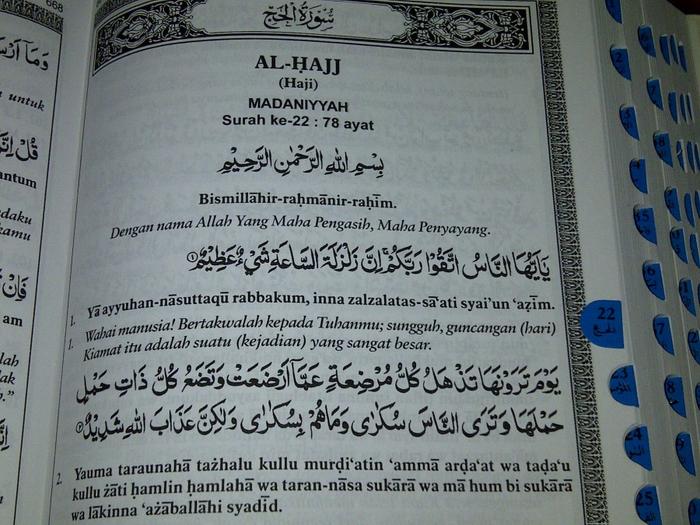 668
وما
untuk
antum
daku
kamu
فإن
am
lah
dak
سورة الحج
AL-ḤAJJ
(Haji)
MADANIYYAH
Surah ke-22 : 78 ayat
بِسْمِ اللهِ الرَّحْمٰنِ الرَّحِيْمِ
Bismillāhir-raḥmānir-raḥīm.
Dengan nama Allah Yang Maha Pengasih, Maha Penyayang.
يٰٓاَيُّهَا النَّاسُ اتَّقُوْا رَبَّكُمْۚ اِنَّ زَلْزَلَةَ السَّاعَةِ شَيْءٌ عَظِيْمٌ ١
1. Yā ayyuhan-nāsuttaqū rabbakum, inna zalzalatas-sā‘ati syai'un ‘aẓīm.
1. Wahai manusia! Bertakwalah kepada Tuhanmu; sungguh, guncangan (hari)
Kiamat itu adalah suatu (kejadian) yang sangat besar.
يَوْمَ تَرَوْنَهَا تَذْهَلُ كُلُّ مُرْضِعَةٍ عَمَّآ اَرْضَعَتْ وَتَضَعُ كُلُّ ذَاتِ حَمْلٍ
حَمْلَهَا وَتَرَى النَّاسَ سُكٰرٰى وَمَا هُمْ بِسُكٰرٰى وَلٰكِنَّ عَذَابَ اللهِ شَدِيْدٌ ٢
2. Yauma taraunahā tażhalu kullu murḍi‘atin ‘ammā arḍa‘at wa taḍa‘u
kullu żāti ḥamlin ḥamlahā wa taran-nāsa sukārā wa mā hum bi sukārā
wa lākinna ‘ażāballāhi syadīd.
22
الحج
23
24
25